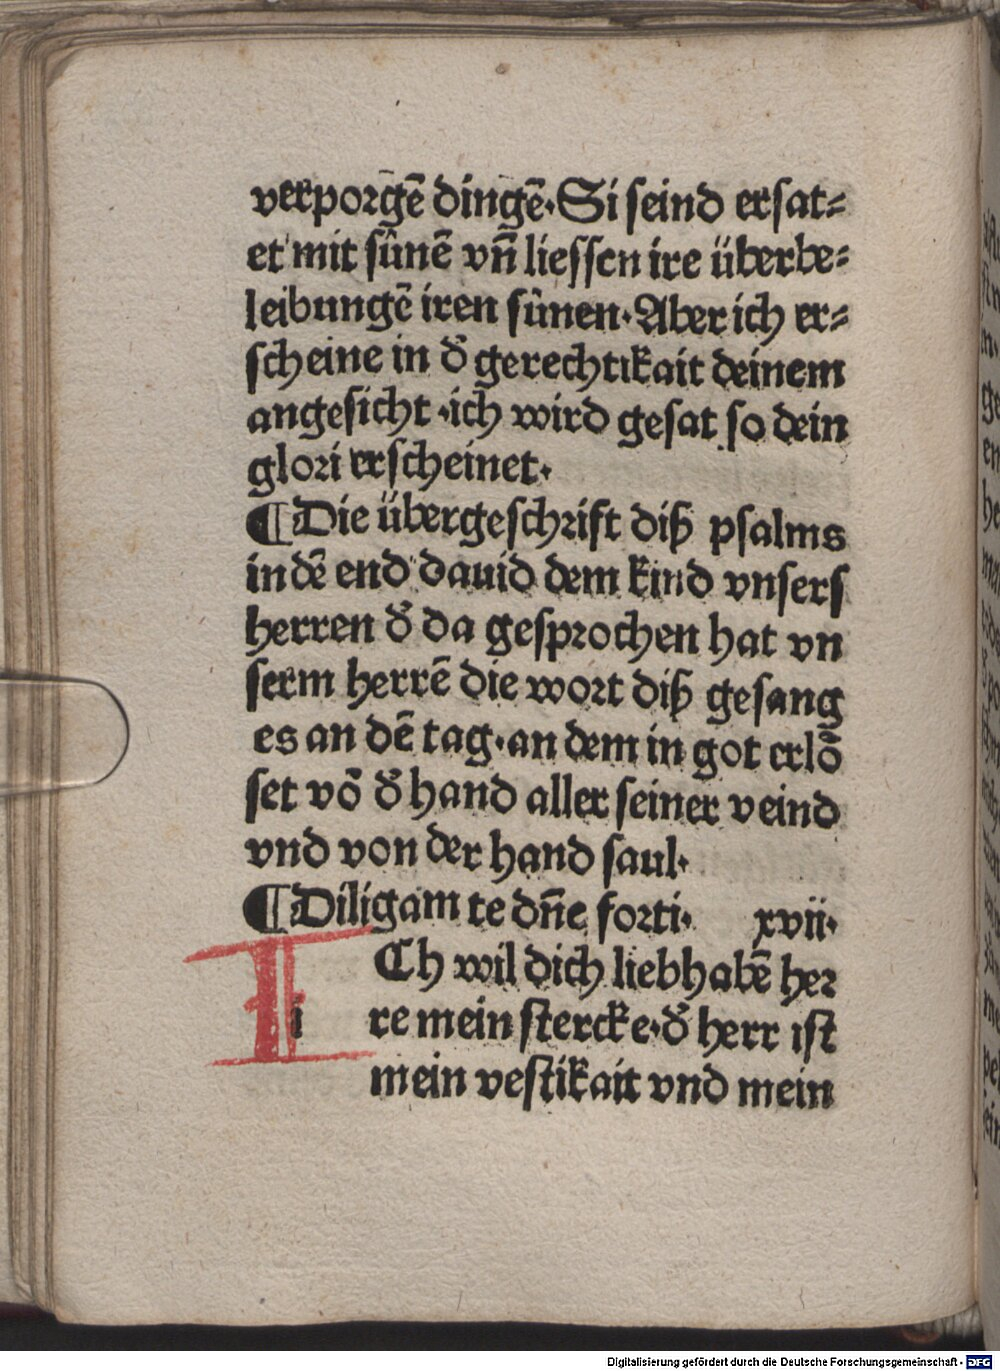 verporgē dingē·Si seind ersat⸗
et mit sűnē vn̄ liessen ire überbe⸗
leibungē iren sűnen·Aber ich er⸗
scheine in d̕ gerechtikait deinem
angesicht·ich wird gesat so dein
glori erscheinet·
¶Die übergeschrift diß psalms
in dē end dauid dem kind vnsers
herren d̕ da gesprochen hat vn
serm herrē die wort diß gesang
es an dē tag·an dem in got erlö
set vō d̕ hand aller seiner veind
vnd von der hand saul·
¶Diligam te dn̄e forti· xvii·
I Ch wil dich liebhabē her
i re mein stercke·d̕ herr ist
mein vestikait vnd mein
Digitalisierung gefördert durch die Deutsche Forschungsgemeinschaft - DFG